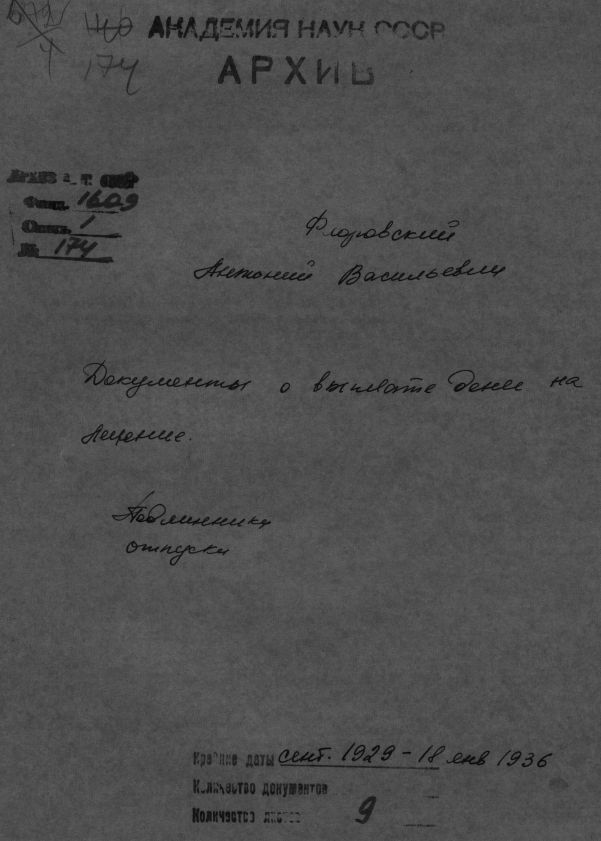 АКАДЕМИЯ НАУК СССР
АРХИВ
140
174
Архив А. Н. СССР
Фонд. 1609
Опись. 1
№ 174
Флоровский
Антоний Васильевич
Документы о выплате денег на
лечение.
Подлинники
отпуски
Крайние даты сент. 1929 - 18 янв 1936
Количество документов
Количество листов 9